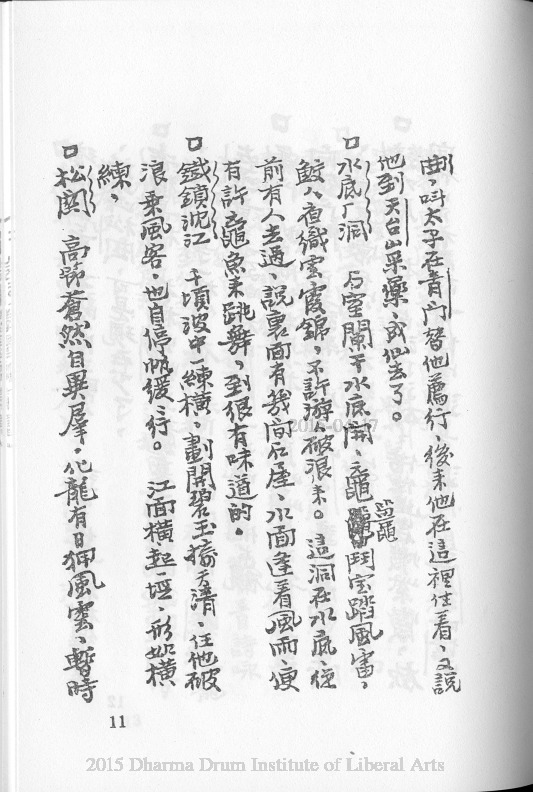 曲,叫太子在青門替他薦行,後來他在這裡住着,又說
他到天台山采藥,成仙去了。
口水底厂洞 石室開于水底開,元龜鬥宝踏風雷,
鮫人夜織雲霞錦,不許游破浪來。這洞在水底,從
前有人去過,說裏面有幾间石屋,水面逢着風雨,便
有許龜魚來跳舞,到很有味道的。
口鐵鎖沈江 千頃波中一練横,劃開碧玉接天清,任他破
浪乘風客,也自停帆緩緩行。 江面横起一堰,形如横
練,
口松関 高蹄蒼然自異羣,化龍有日狎風雲,暫時
11
2015 Dharma Drum Institute of Liberal Arts